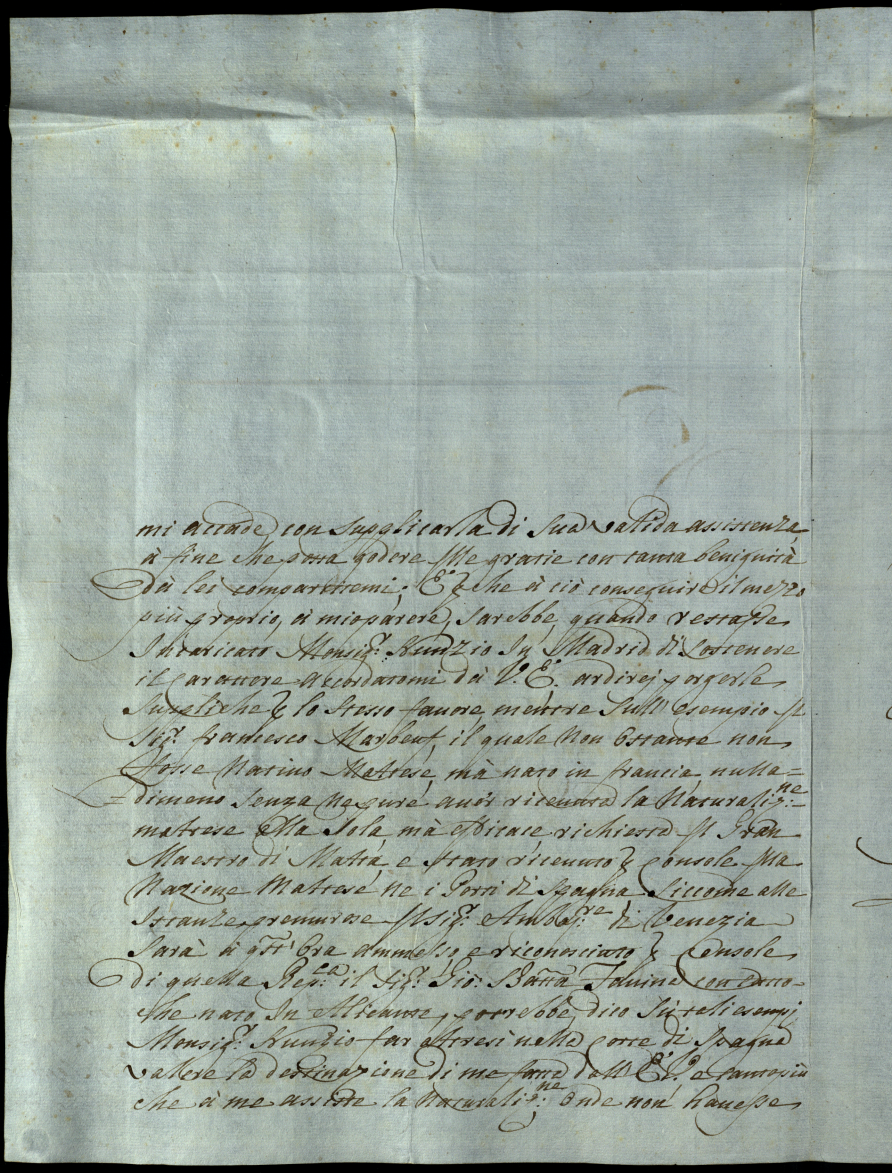 mi accade, con supplicarla di sua valida assistenza
à fine che possa godere le gratie con tanta benignità
da lei compartitemi; E che à ciò conseguire il mezzo
più proprio, à mio parere, sarebbe, quando restasse
Incaricato Monsig.r Nunzio In Madrid di sostenere
il carattere accordatomi da V. E. ardirei porgerle
suppliche lo stesso favore mentre sull'esempio
Sig.r francesco Marbeuf, il quale non ostante non
fosse nativo Maltese, mà nato in francia, nulla=
=dimeno senza ne pure avér ricevuta la Naturaliz.ne
maltese alla sola mà efficace richiesta Gran
Maestro di Malta è stato ricevuto console
Nazione Maltese ne i Porti di Spagna Siccome alle
Istanze premurose Sig.r Amba.re di Venezia
sarà à qst' ora ammesso, e riconosciuto Console
di quella Rep.ca il Sig.r Gio: Batta con tutto=
che nato In Alicante, potrebbe, dico su tali esempj
Monsig.r Nunzio far altresi nella corte di Spagna
vallere la destinazione di me fatta dall' E. e tanto più
che à me assiste la Naturaliz.ne onde non havesse